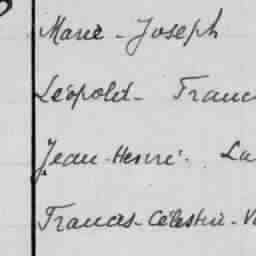 Marie - Joseph
Léopold - Franc
Jean - Henri - La
Francis - Célestin - V